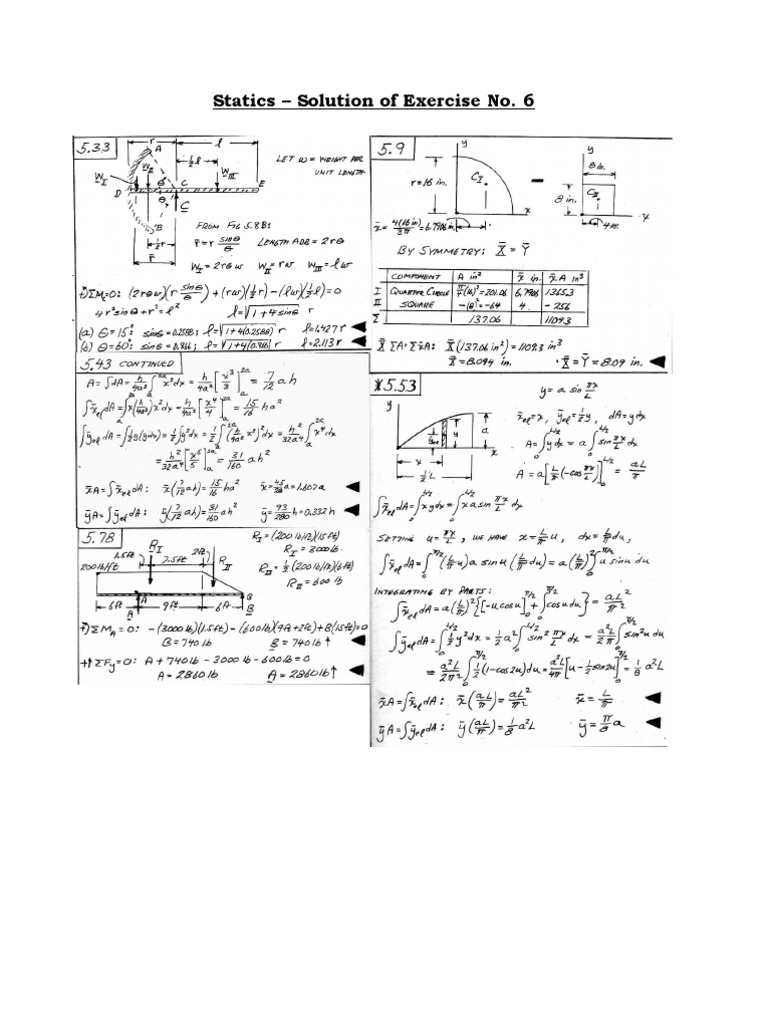 Statics – Solution of Exercise No. 6
5.33
r
l
A
½l
W_III
W_II
W_I
D
θ
C
E
θ
B
C
½r
r̄
LET w = WEIGHT PER
UNIT LENGTH
FROM FIG 5.8B:
r̄ = r sinθ/θ LENGTH ADB = 2rθ
W_I = 2rθw W_II = rw W_III = lw
+)ΣM_C=0: (2rθw)(r sinθ/θ) + (rw)(½r) − (lw)(½l) = 0
4r² sinθ + r² = l² l = √(1+4sinθ) r
(a) θ = 15°: sinθ = 0.2588; l = √(1+4(0.2588)) r l = 1.427r
(b) θ = 60°: sinθ = 0.866; l = √(1+4(0.866)) r l = 2.113r
5.43 CONTINUED
A = ∫dA = h/4a² ∫x²dx = h/4a² [x³/3] = 7/12 ah
∫x̄_el dA = ∫x(h/4a² x²)dx = h/4a² [x⁴/4] = 15/16 ha²
∫ȳ_el dA = ∫½y(ydx) = ½∫y²dx = ½∫(h/4a² x²)²dx = h²/32a⁴ ∫x⁴dx
= h²/32a⁴ [x⁵/5] = 31/160 ah²
x̄A = ∫x̄_el dA: x̄(7/12 ah) = 15/16 ha² x̄ = 45/28 a = 1.607a
ȳA = ∫ȳ_el dA: ȳ(7/12 ah) = 31/160 ah² ȳ = 93/280 h = 0.332h
5.78
1.5ft R_I 2ft
7.5ft R_II
200 lb/ft
A
B
6ft 9ft 6ft
A
B
R_I = (200 lb/ft)(15ft)
R_I = 3000 lb
R_II = ½(200 lb/ft)(6ft)
R_II = 600 lb
+)ΣM_A=0: −(3000 lb)(1.5ft) − (600 lb)(9ft+2ft) + B(15ft) = 0
B = 740 lb B = 740 lb ↑
+↑ΣF_y=0: A + 740 lb − 3000 lb − 600 lb = 0
A = 2860 lb A = 2860 lb ↑
5.9
y
r = 16 in.
C_I
x
x̄ = 4(16 in)/3π = 6.7906 in.
−
y
8 in.
8 in.
C_II
x
4 in.
BY SYMMETRY: X̄ = Ȳ
COMPONENT A in² x̄ in. x̄A in³
I QUARTER CIRCLE π/4(16)² = 201.06 6.7906 1365.3
II SQUARE −(8)² = −64 4 −256
Σ 137.06 1109.3
X̄ΣA = Σx̄A: X̄(137.06 in²) = 1109.3 in³
X̄ = 8.094 in. X̄ = Ȳ = 8.09 in.
*5.53
y = a sin πx/L
y
a
y
x
x
½L
x̄_el = x, ȳ_el = ½y, dA = ydx
A = ∫ydx = a∫sin πx/L dx
A = a[L/π(−cos πx/L)] = aL/π
∫x̄_el dA = ∫xydx = ∫xa sin πx/L dx
SETTING u = πx/L, WE HAVE x = L/π u, dx = L/π du,
∫x̄_el dA = ∫(L/π u) a sin u (L/π du) = a(L/π)² ∫u sin u du
INTEGRATING BY PARTS:
∫x̄_el dA = a(L/π)² {[−u cos u] + ∫cos u du} = aL²/π²
∫ȳ_el dA = ∫½y²dx = ½a² ∫sin² πx/L dx = a²L/2π ∫sin²u du
= a²L/2π ∫½(1−cos2u)du = a²L/4π [u − ½sin2u] = 1/8 a²L
x̄A = ∫x̄_el dA: x̄(aL/π) = aL²/π² x̄ = L/π
ȳA = ∫ȳ_el dA: ȳ(aL/π) = 1/8 a²L ȳ = π/8 a